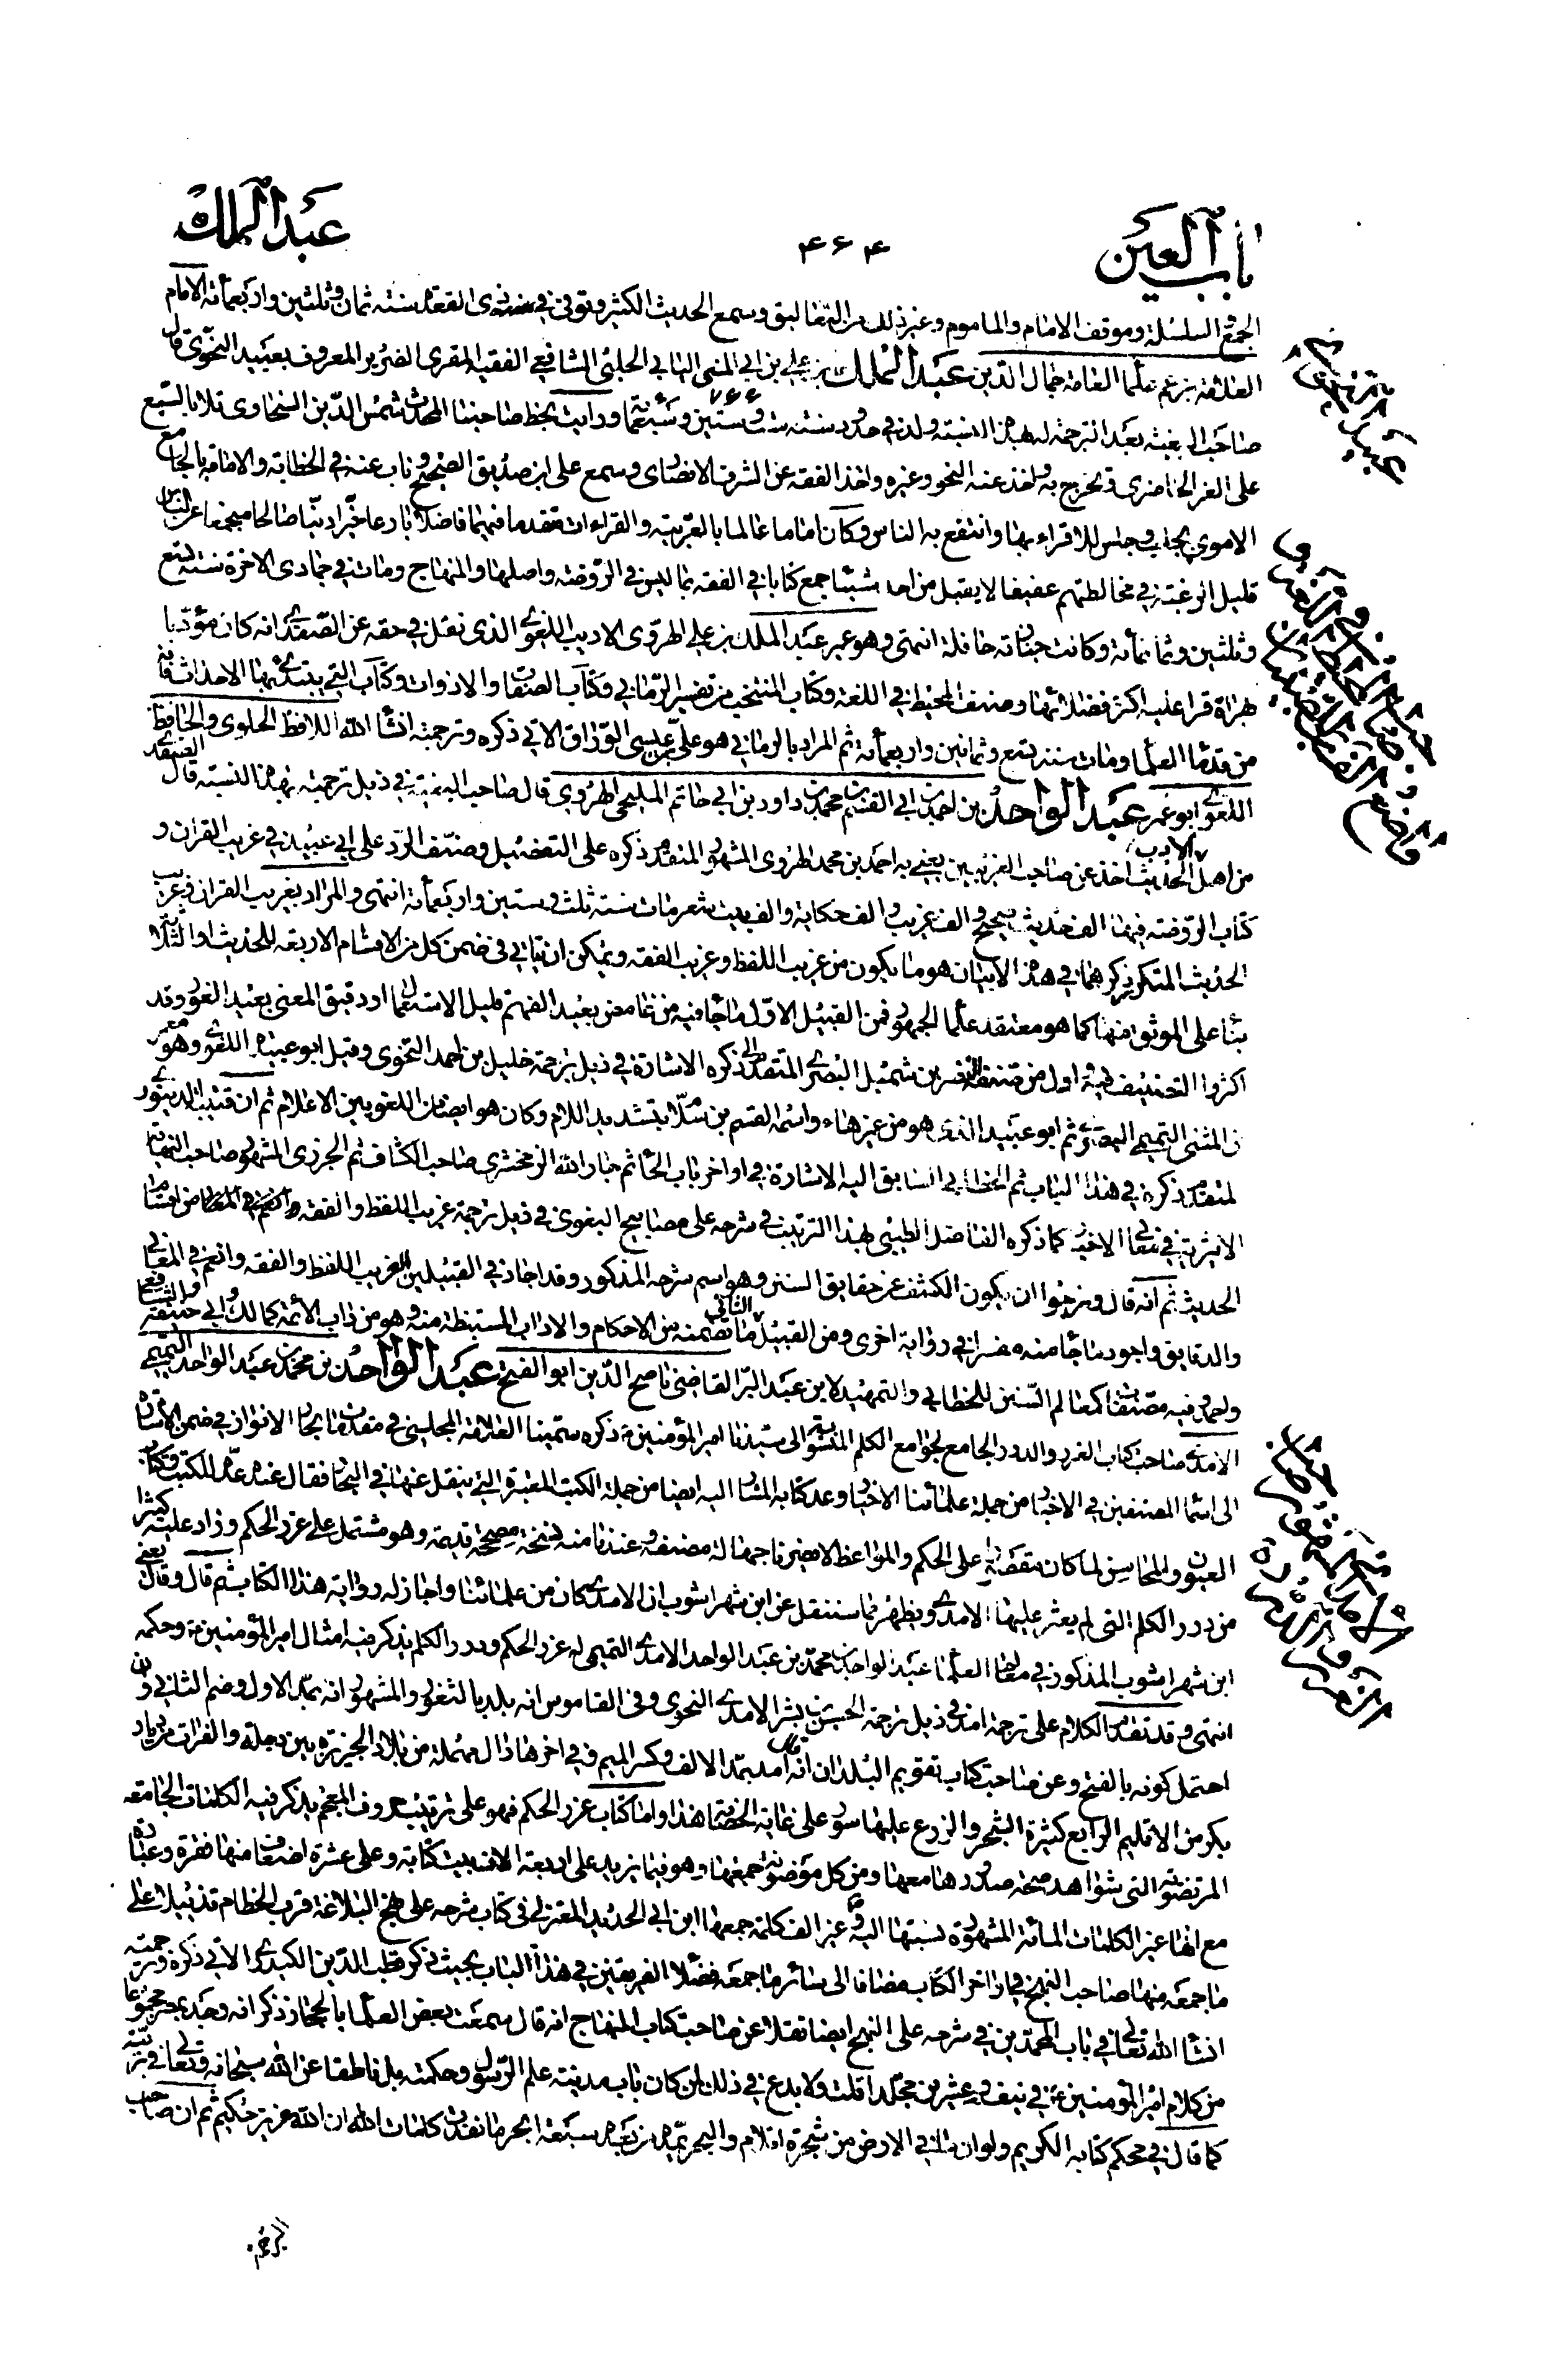 باب العين
۴۶۴
عبد الملك
الجمع و السلسلة وموقف الامام والماموم وغير ذلك من التعاليق وسمع الحديث الكثير وتوفى فى ذى القعدة سنة ثمان وثلثين واربعمأة الامام
العلامة بزعم علماء العامة جمال الدين عبد الملك بن على بن ابى المنى البابى الحلبى الشافعى الفقيه المقرى الضرير المعروف بعبيد النحوى قال
صاحب البغية بعد الترجمة له بهذه النسبة ولد فى حدود سنة ست وستين وسبعمأة ورايت بخط صاحبنا المحدث شمس الدين السخاوى تلا بالسبع
على العز الحاضرى وتخرج به واخذ عنه النحو وغيره واخذ الفقه عن الشرف الانصارى وسمع على ابن صديق الصحيح وناب عنه فى الخطابة والامامة بالجامع
الاموى بحلب وجلس للاقراء بها وانتفع به الناس وكان اماما عالما بالعربية والقراءات متقدما فيهما فاضلا بارعا خيرا دينا صالحا منجمعا عن الناس
قليل الرغبة فى مخالطتهم عفيفا لا يقبل من احد شيئا جمع كتابا فى الفقه مما ليس فى الروضة واصلها والمنهاج ومات فى جمادى الاخرة سنة تسع
وثلثين وثمانمأة وكانت جنازته حافلة انتهى وهو غير عبد الملك بن على الهروى الاديب اللغوى الذى نقل فى حقه عن الصفدى انه كان مؤدبا
بهراة قرا عليه اكثر فضلائها وصنف المحيط فى اللغة وكتاب المنتخب من تفسير الرمانى وكتاب الصفات والادوات وكتاب التى يبتدئ بها الاحداث قاله
من قدماء العلما ومات سنة تسع وثمانين واربعمأة ثم المراد بالرمانى هو على بن عيسى الوراق الاتى ذكره وترجمته انشاء الله اللافظ الحاوى والحافظ
اللغوى ابو عمر عبد الواحد بن احمد بن ابى القسم بن محمد بن داود بن ابى حاتم المليحى الهروى قال صاحب البغية فى ذيل ترجمته بهذه النسبة قال الصفدى
من اهل الادب والحديث اخذ عن صاحب الغريبين يعنى به احمد بن محمد الهروى المشهور المتقدم ذكره على التفصيل وصنف الرد على ابى عبيد فى غريب القران و
كتاب الروضة فيها الف حديث صحيح والف غريب والف حكاية والف بيت شعر مات سنة ثلث وستين واربعمأة انتهى والمراد بغريب القران وغريب
الحديث المتكرر ذكرهما فى هذا الابيان هو ما يكون من غريب اللفظ وغريب الفقه ويمكن ان ياتى فى ضمن كل من الاقسام الاربعة للحديث او الثلاثة
بناء على الموثوق منها كما هو معتقد علماء الجمهور فمن القبيل الاول ما جاء فيه من غامض بعيد الفهم قليل الاستعمال او دقيق المعنى بعيد الغور وقد
اكثروا التصنيف فيه اول من صنفه النضر بن شميل البصرى المتقدم الى ذكره الاشارة فى ذيل ترجمة خليل بن احمد النحوى وقيل ابو عبيدة اللغوى وهو معمر
بن المثنى التيمى البصرى ثم ابو عبيد الذى هو من غيرهاء واسمه القسم بن سلام بتشديد اللام وكان هو ايضا من اللغويين الاعلام ثم ابن قتيبة الدينورى
المتقدم ذكره فى هذا الباب ثم الخطابى السابق اليه الاشارة فى اواخر باب الحاء ثم جار الله الزمخشرى صاحب الكشاف ثم الجزرى المشهور صاحب النهاية
الاثيرية فى الاخير كما ذكره الفاضل الطيبى بهذا الترتيب فى شرحه على مصابيح البغوى فى ذيل ترجمة غريب اللفظ والفقه
الحديث ثم انه قال ونرجوا ان يكون الكشف عن حقايق السنن وهو اسم شرحه المذكور وقد اجاد فى القبيلين الغريب اللفظ والفقه وانعم فى المعانى
والدقايق واجود ما جاء منه مفسرا فى رواية اخرى ومن القبيل الثانى ما تضمنه من الاحكام والاداب المستنبطة منه وهو من داب الأئمة كمالك وابى حنيفة والشافعى
واحمد وفيه مصنفات كمعالم السنن للخطابى والتمهيد لابن عبد البر القاضى ناصح الدين ابو الفتح عبد الواحد بن محمد بن عبد الواحد التميمى
الامدى صاحب كتاب الغرر والدرر الجامع لجوامع الكلم المنسوبة الى سيدنا امير المؤمنين ذكره سمينا العلامة المجلسى فى مقدمات بحار الانوار فى ضمن الاشارة
الى اسماء المصنفين فى الاخبار من جملة علمائنا الاخيار وعد كتابه المشار اليه ايضا من جملة الكتب المعتبرة التى ينقل عنها فى البحار فقال عنده عد الكتب وكتاب
العيون والمحاسن لما كان مقصورا على الحكم والمواعظ لا يضرنا جهالة مصنفه وعندنا منه نسخة مصححة قديمة وهو مشتمل على غرر الحكم وزاد عليه كثيرا
من درر الكلم التى لم يعثر عليها الامدى ويظهر مما سننقل عن ابن شهراشوب ان الامدى كان من علمائنا واجاز له رواية هذا الكتاب ثم قال وقال يعنى
ابن شهراشوب المذكور فى معالم العلماء عبد الواحد بن محمد بن عبد الواحد الامدى التميمى له غرر الحكم ودرر الكلم يذكر فيه امثال امير المؤمنين وحكمه
انتهى وقد تقدم الكلام على ترجمة امد فى ذيل ترجمة الحسن بن بشر الامدى النحوى وفى القاموس انه بلد بالثغور والمشهور انه بمد الاول وضم الثانى وان
احتمل كونه بالفتح وعن صاحب كتاب تقويم البلدان انه قال امد بمد الالف وكسر الميم وفى اخرها دال مهملة من بلاد الجزيرة بين دجلة والفرات من ديار
بكر من الاقليم الرابع كثيرة الشجر والزرع عليها سور على غاية الحصانة هذا واما كتاب غرر الحكم فهو على ترتيب حروف المعجم يذكر فيه الكلمات الجامعة
المرتضوية التى شواهد صحة صدورها معها ومن كل موضوعة جميعها وهو فيما يزيد على اربعة الاف بيت كتابة وعلى عشرة اضعاف منها فقرة وعبارة
مع انها غير الكلمات المائة المشهورة نسبتها اليه وغير الف كلمة جمعها ابن ابى الحديد المعتزلى فى كتاب شرحه على نهج البلاغة قرب الختام تذييلا على
ما جمعه منها صاحب النهج فى اواخر الكتاب مضافا الى سائر ما جمعه فضلاء الفريقين فى هذا الباب بحيث ذكر قطب الدين الكيدرى الاتى ذكره وترجمته
انشاء الله تعالى فى باب المحمدين فى شرحه على النهج ايضا نقلا عن صاحب كتاب المنهاج انه قال سمعت بعض العلماء بالحجاز ذكر انه وجد بمصر مجموعا
من كلام امير المؤمنين فى نيف وعشرين مجلدا قلت ولا بدع فى ذلك لمن كان باب مدينة علم الرسول وحكمته بل ناطقا عن الله سبحانه وتعالى
كما قال فى محكم كتابه الكريم ولو ان ما فى الارض من شجرة اقلام والبحر يمده من بعده سبعة ابحر ما نفدت كلمات الله ان الله عزيز حكيم ثم ان صاحب